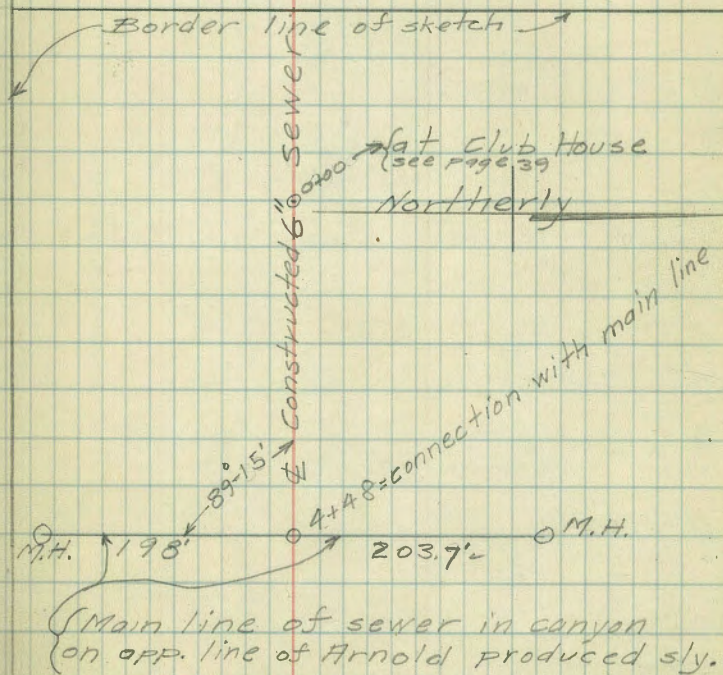 Border line of sketch
℄ constructed 6" sewer
0+00
{at Club House
(see page 39
Northerly
89°-15'
4+48=connection with main line
M.H.
198'
203.7'
M.H.
{Main line of sewer in canyon
on opp. line of Arnold produced sly.